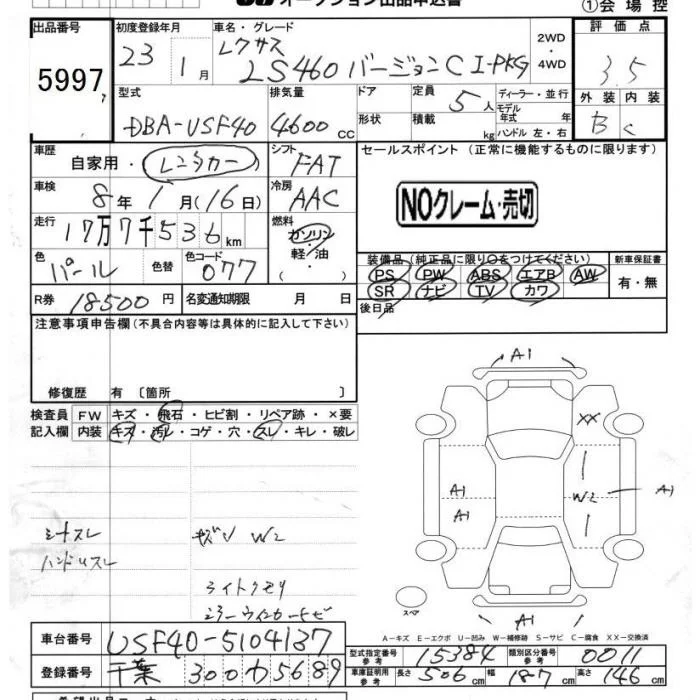 オークション出品申込書
①会場控
出品番号 初度登録年月 車名・グレード 評価点
5997 23 1月 レクサス LS460 バージョンC I-PKG 2WD・4WD 3.5
型式 排気量 ドア 定員 ディーラー・並行 外装 内装
DBA-USF40 4600cc 形状 5人 積載 kg モデル年式 年式 ハンドル 左・右 B C
車歴 自家用・レンタカー シフト FAT セールスポイント (正常に機能するものに限ります)
車検 8年1月(16日) 冷房 AAC
NOクレーム・売切
走行 17万7千536km 燃料 ガソリン・軽油・( )
色 パール 色替 色コード 077 装備品(純正品に限り○をつけてください) 新車保証書
PS PW ABS エアB AW 有・無
SR ナビ TV カワ
R券 18500円 名変通知期限 月 日 後日品
注意事項申告欄(不具合内容等は具体的に記入して下さい)
修復歴 有〔箇所 〕
検査員 FW キズ・飛石・ヒビ割・リペア跡・×要
記入欄 内装 キズ・汚レ・コゲ・穴・スレ・キレ・破レ
A1
XX
A1 W2 A1
A1
シートスレ キズ W2
ハンドルスレ
ライトクモリ
ミラーウィンカーヒビ
スペア
A1
A-キズ E-エクボ U-凹み W-補修跡 S-サビ C-腐食 XX-交換済
車台番号 USF40-5104137
登録番号 千葉 300 わ 5689
型式指定番号 参考 15384 類別区分番号 参考 0011
車庫証明用 参考 長さ 506cm 幅 187cm 高さ 146cm